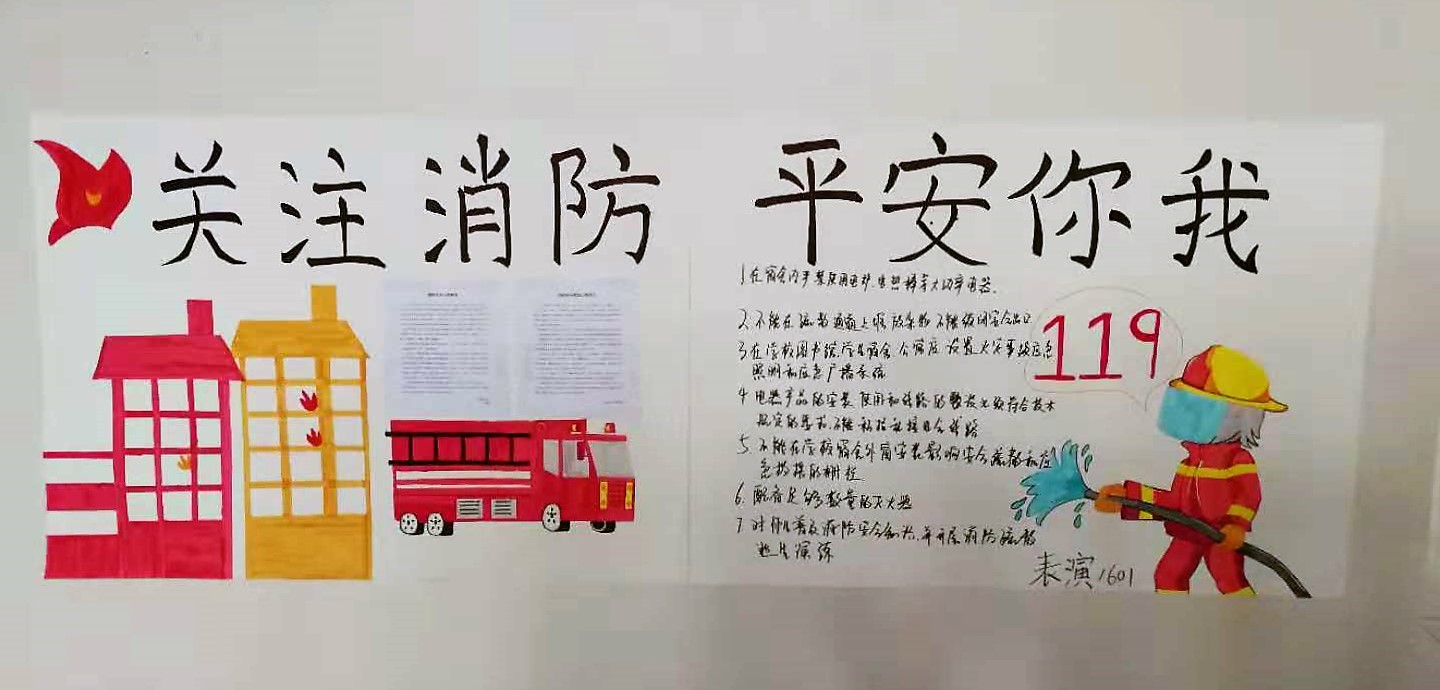 关注消防 平安你我
1 在宿舍内严禁使用电炉、电热棒等大功率电器.
2 不能在疏散通道上堆放杂物 不能锁闭安全出口
3 在学校图书馆,学生宿舍,公寓应 设置火灾事故应急
照明和应急广播系统
4 电器产品的安装 使用和线路的敷设必须符合技术
规定的要求,不能私拉乱接用公线路
5 不能在学校宿舍外窗安装影响安全疏散和应
急救援的栅栏
6 配备足够数量的灭火器
7 对师生普及消防安全知识,并开展消防疏散
逃生演练
119
表演1601